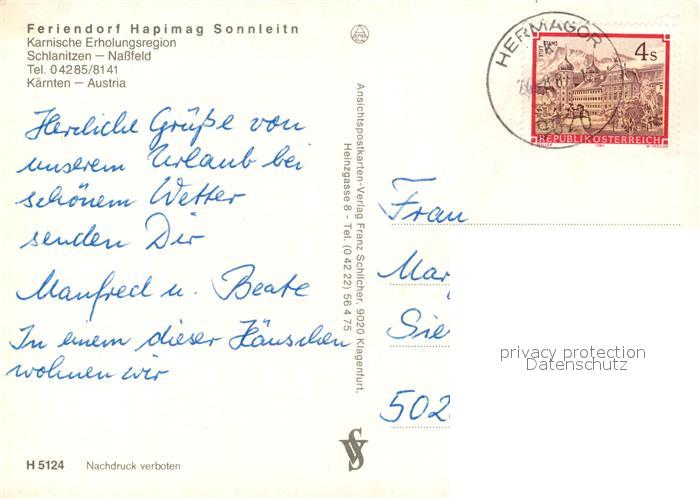 Feriendorf Hapimag Sonnleitn
Karnische Erholungsregion
Schlanitzen – Naßfeld
Tel. 0 42 85/81 41
Kärnten – Austria
Herzliche Grüße von
unserem Urlaub bei
schönem Wetter
senden Dir
Manfred u. Beate
In einem dieser Häuschen
wohnen wir
H 5124
Nachdruck verboten
Ansichtspostkarten-Verlag Franz Schilcher, 9020 Klagenfurt,
Heinzgasse 8 - Tel. (0 42 22) 56 4 75
HERMAGOR
STIFT STAMS
4 S
REPUBLIK ÖSTERREICH
Frau
Mar
Sie
502
privacy protection
Datenschutz